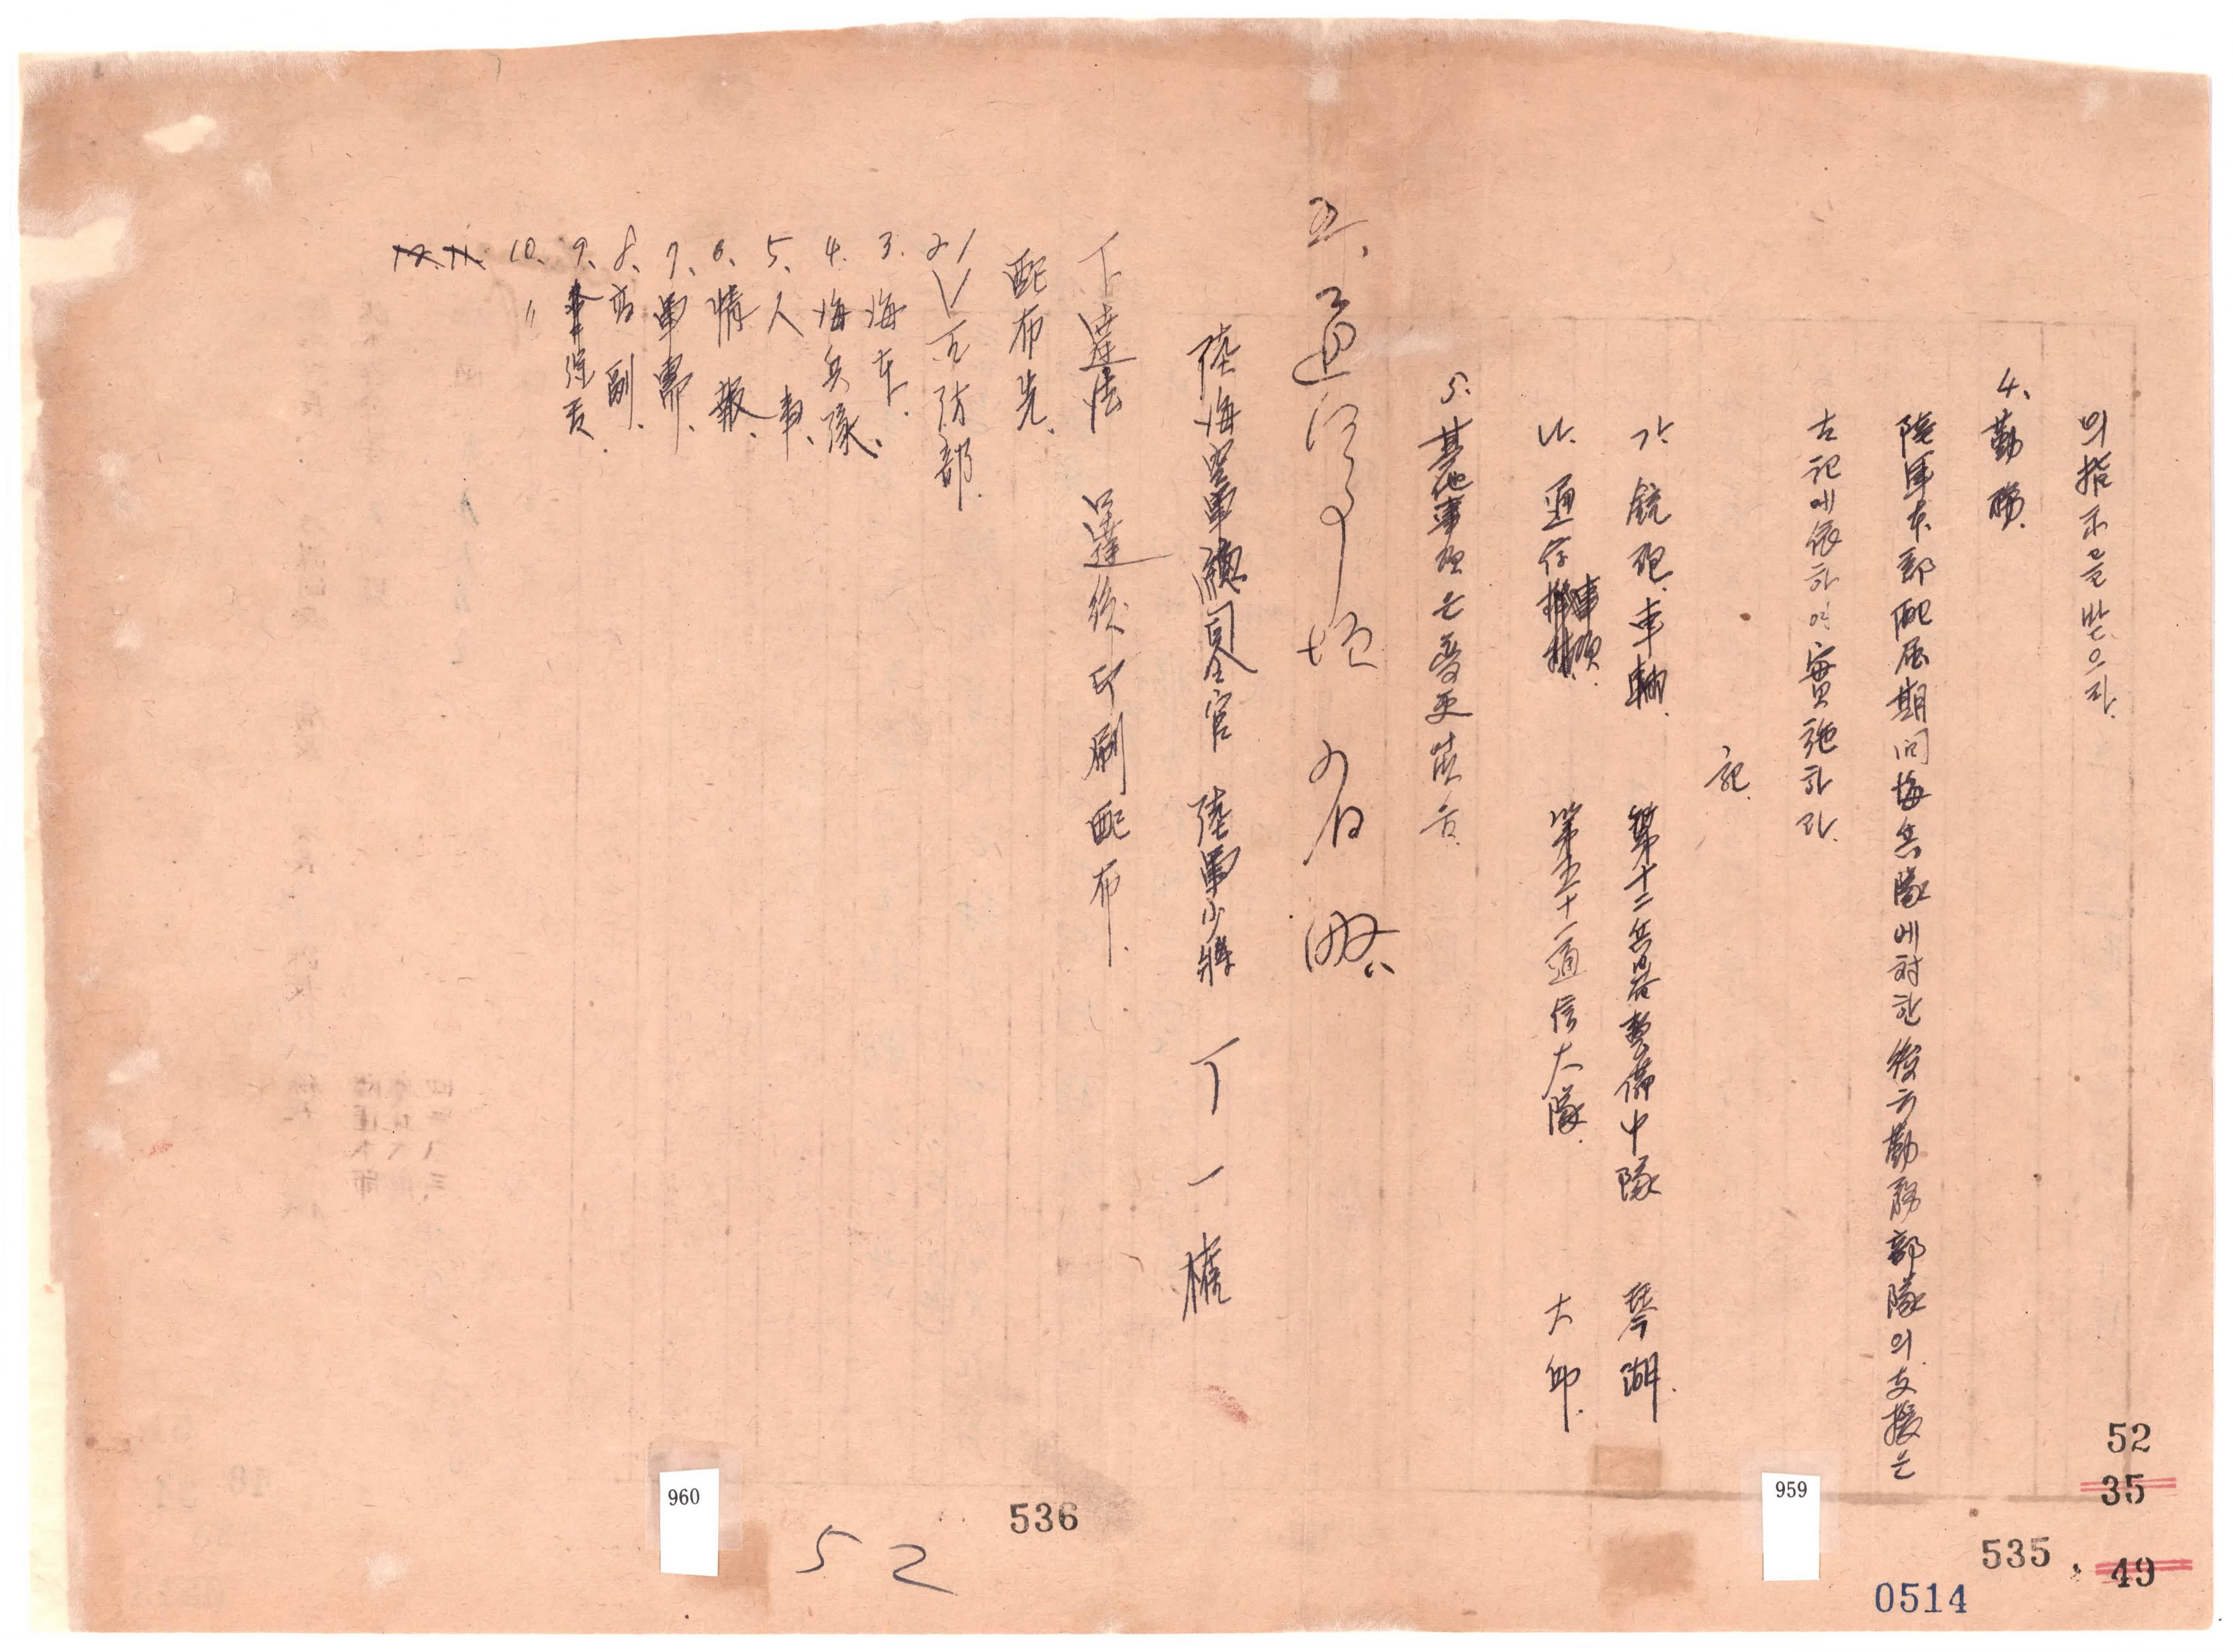 의 指示을 받으라.
4. 勤務.
陸軍本部配屬期間 海兵隊에 対한 後方勤務部隊의 支援은
左記에 依하여 實施하라.
記.
가. 銃砲. 車輛. 第十二兵器整備中隊 琴湖.
나. 通信 事項. 第五十一通信大隊. 大邱.
5. 其他事項은 變更 없음.
陸海空軍總司令官 陸軍少將 丁一權
下達法 口達後 印刷配布.
配布先.
1
2 国防部.
3. 海本.
4. 海兵隊.
5. 人事.
6. 情報.
7. 軍需.
8. 高副.
9. 綴
10. 〃
11.
12.
52
35
49
535
0514
959
536
960
52